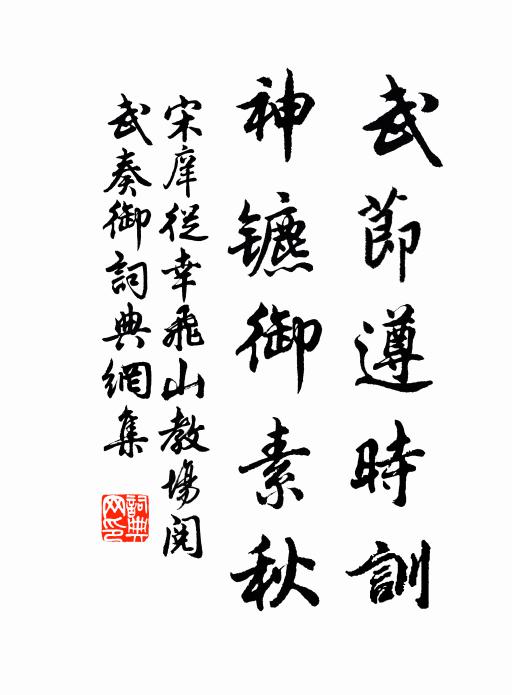 武節遵時訓
神鑣御素秋
宋庠從幸飛山教場閱
武奏御詞典網集
詞典
网印